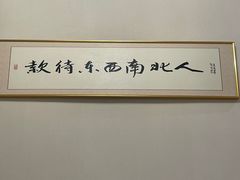 款待东西南北人